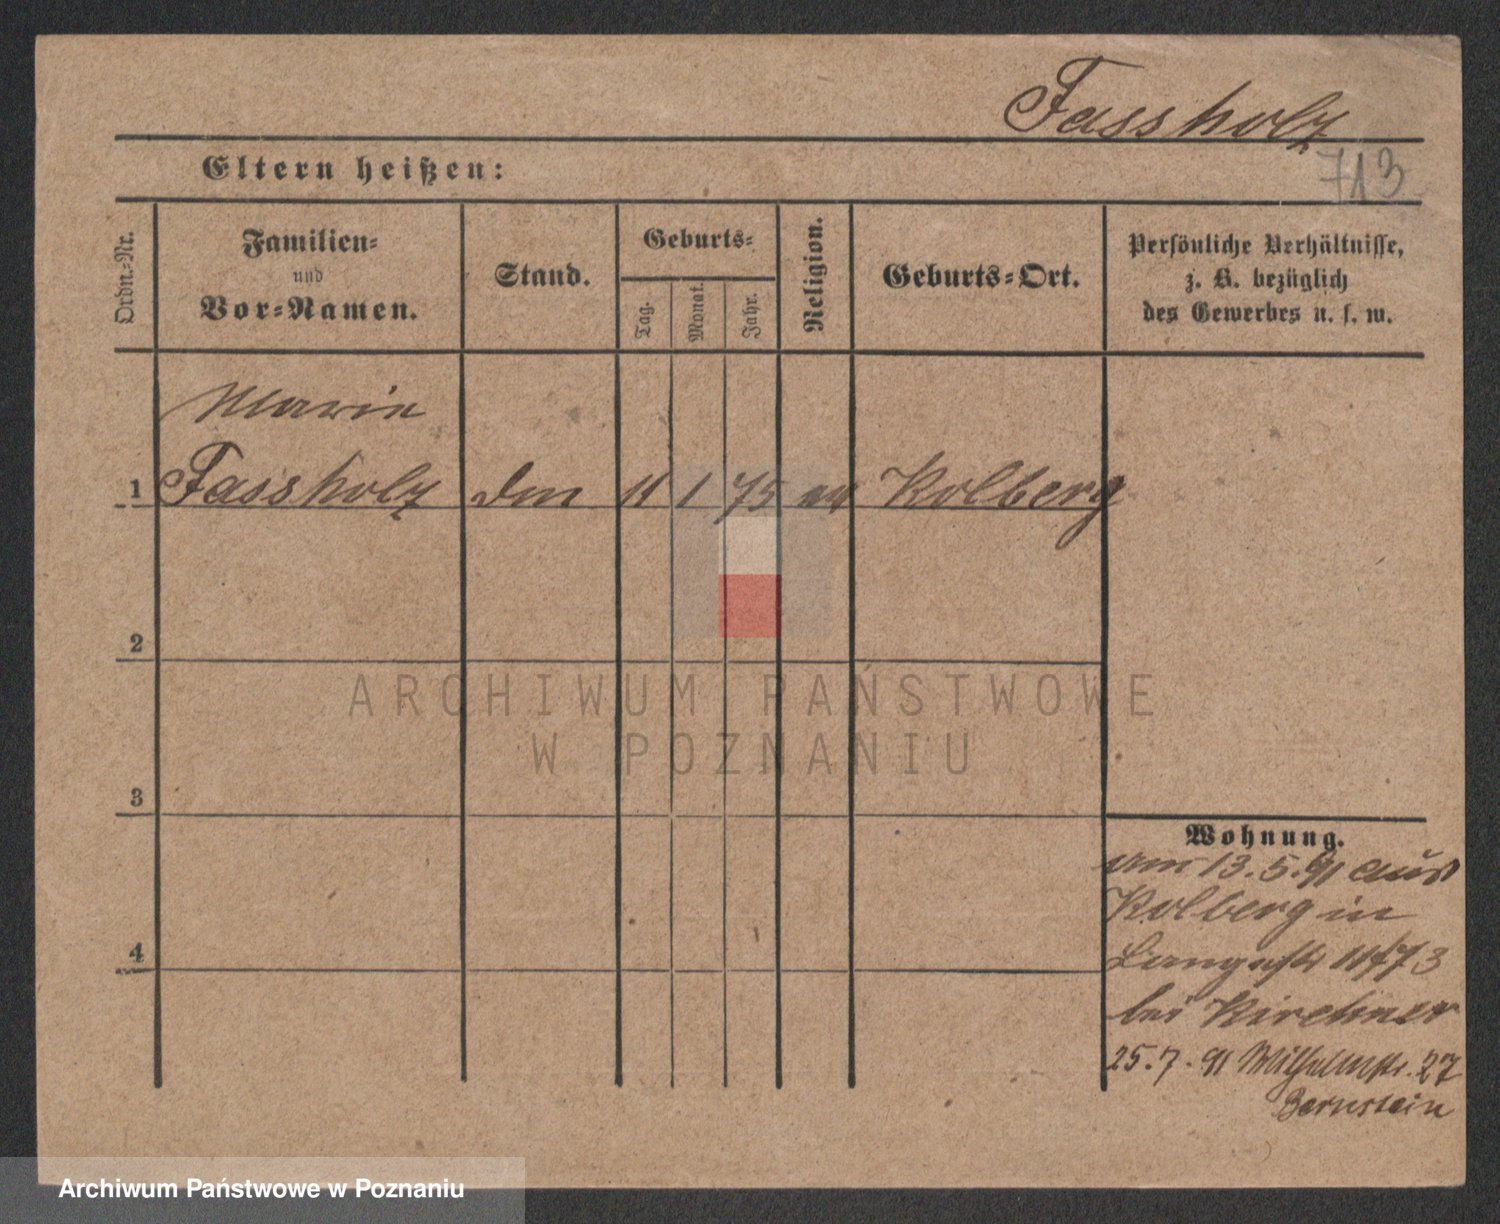 Fassholz
713
Eltern heißen:
Ordn.-Nr.
Familien-
und
Vor-Namen.
Stand.
Geburts-
Tag.
Monat.
Jahr.
Religion.
Geburts-Ort.
Persönliche Verhältnisse,
z. B. bezüglich
des Gewerbes u. s. w.
Marie
1 Fassholz 11 1 75 ev Kolberg
2
ARCHIWUM PAŃSTWOWE
W POZNANIU
3
4
Wohnung.
am 13.5.91 aus
Kolberg in
Langestr 11/73
bei Kirchner
25.7.91 Wilhelmstr. 27
Bernstein
Archiwum Państwowe w Poznaniu